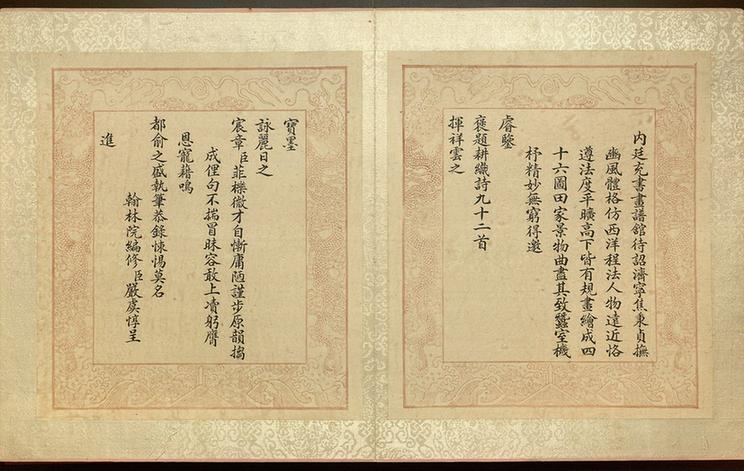 內廷充書畫譜館待詔濟寧焦秉貞撫
豳風體格仿西洋程法人物遠近恪
遵法度平曠高下皆有規畫繪成四
十六圖田家景物曲盡其致蠶室機
杼精妙無窮得邀
睿鑒
褒題耕織詩九十二首
揮祥雲之
寶墨
詠麗日之
宸章臣菲櫟微才自慚庸陋謹步原韻搊
成俚句不揣冒昧容敢上凟躬膺
恩寵藉鳴
都俞之盛執筆恭錄悚惕莫名
翰林院編修臣嚴虞惇呈
進